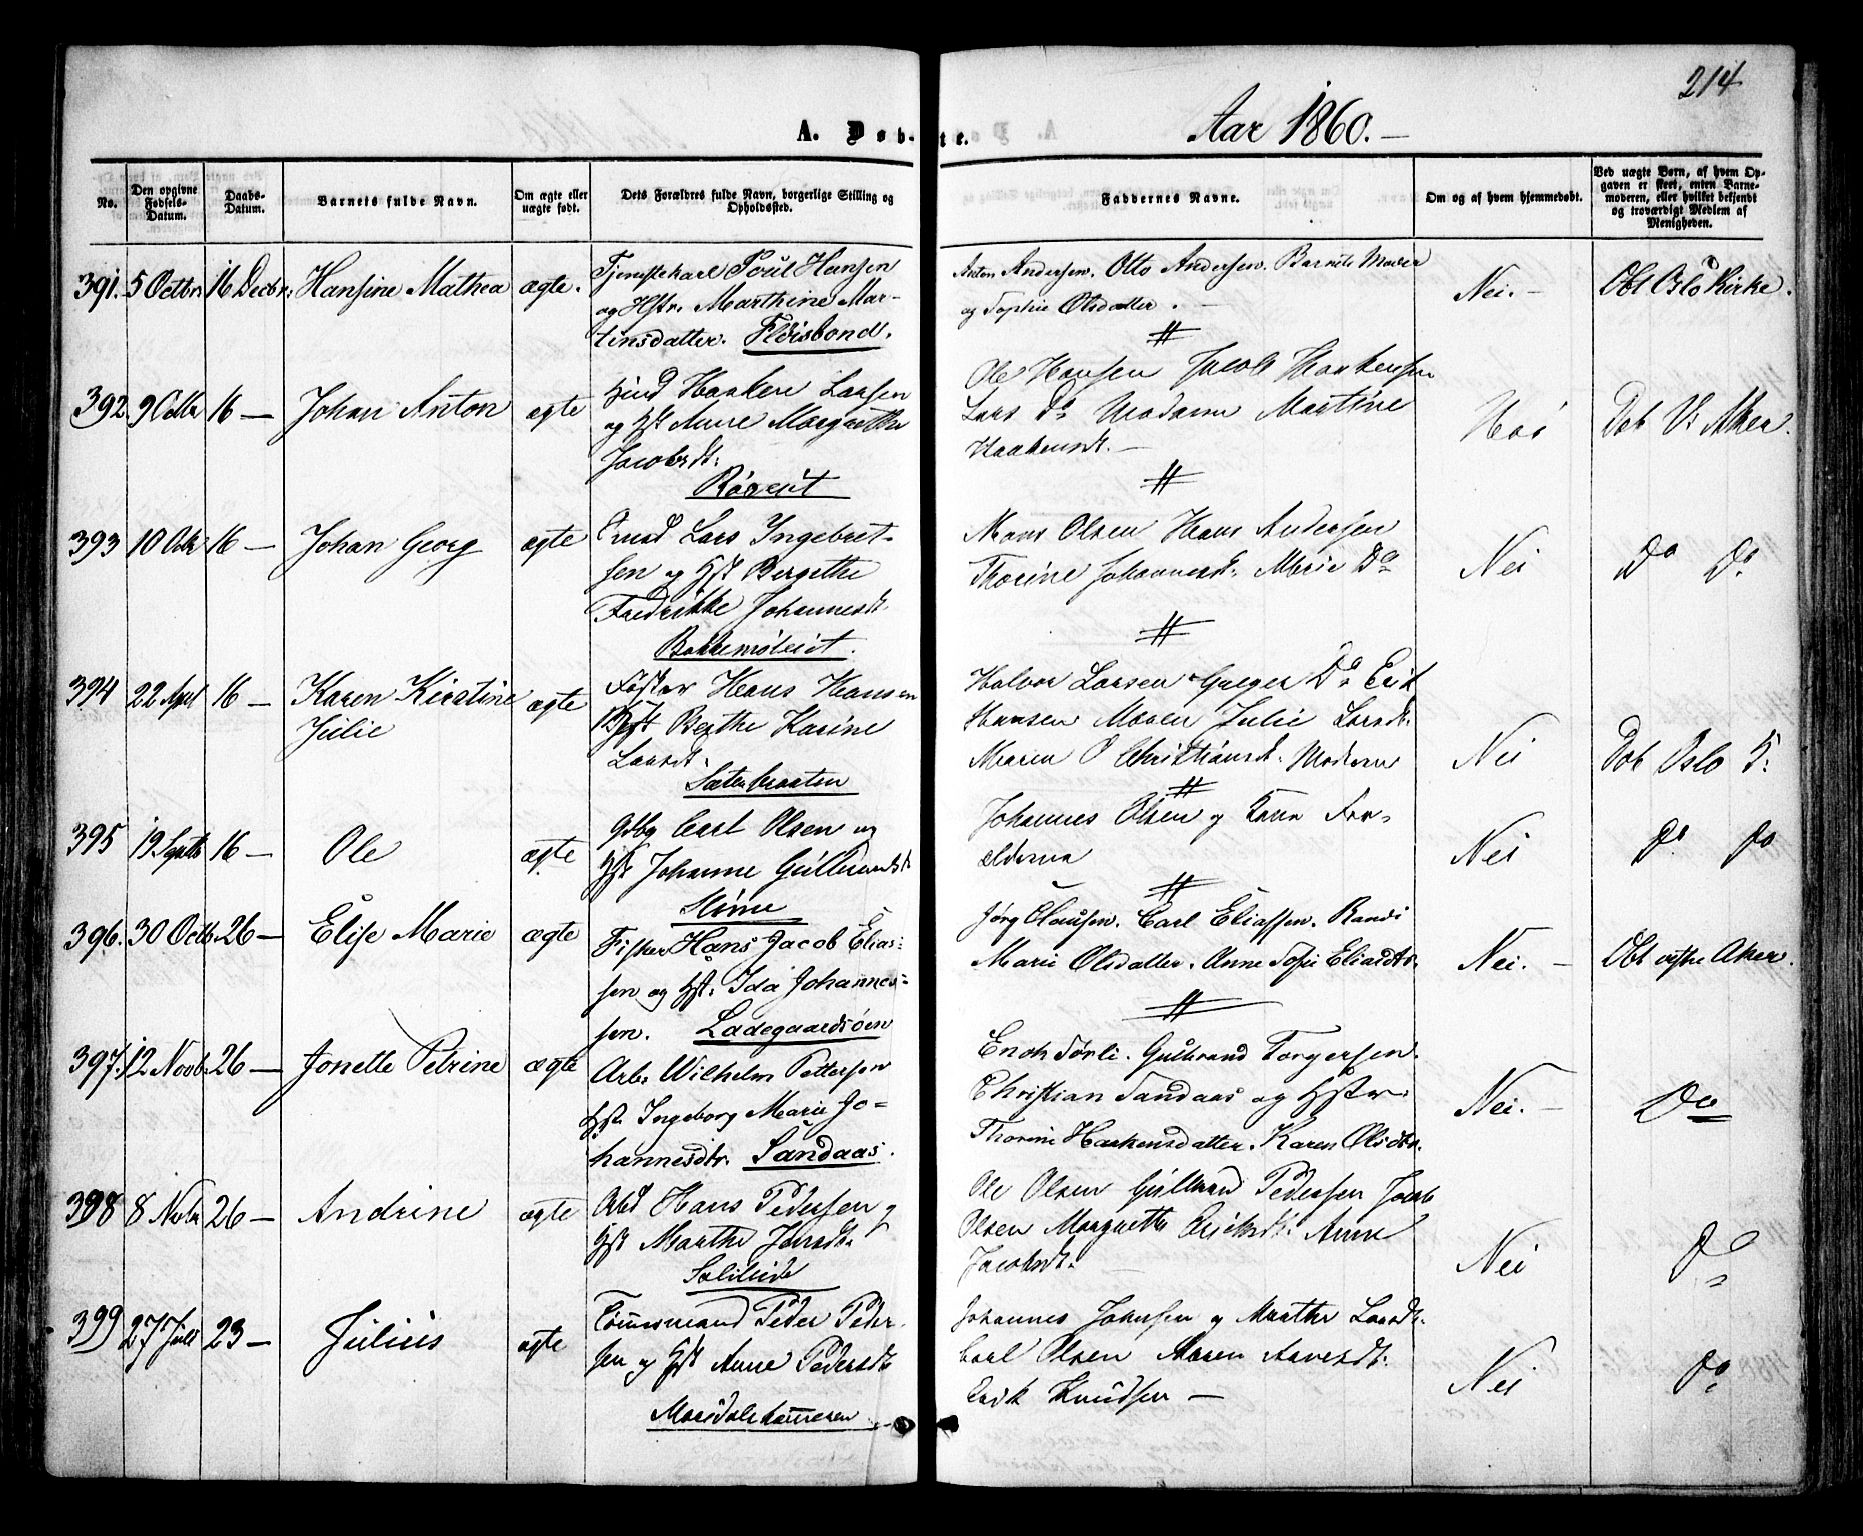 214
A. Døb-te.
Aar 1860.
No.
Den opgivne Fødsels-Datum.
Daabs-Datum.
Barnets fulde Navn.
Om ægte eller uægte født.
Dets Forældres fulde Navn, borgerlige Stilling og Opholdssted.
Faddernes Navne.
Om og af hvem hjemmedøbt.
Ved uægte Børn, af hvem Opgaven er skeet, enten Barnemoderen, eller hvilket bekjendt og troværdigt Medlem af Menigheden.
391. 5 Octbr 16 Decbr. Hansine Mathea ægte. Tjenestekarl Poul Hansen
og Hstr. Marthine Mar-
tinsdatter.
Anton Andersen. Otto Andersen. Barnets Moder
og Sophie Olsdatter.
Nei. — Obl Oslo Kirke.
392 9 Octbr 16 — Johan Anton ægte Haaken Larsen
og Hst Anne Margrethe
Jacobsdt:
Røverüt
Ole Hansen Jacob Haakensen
Lars Do Madam Martine
Haakensdt. —
Nei Døb V. Aker.
393 10 Octbr 16 — Johan Georg ægte Lars Ingebret-
sen og Hst Bergithe
Fredrikke Johannesdt.
Hans Andersen
Thorine Johannesdt. Marie Do
Nei Do Do
394 22 April 16 — Karen Kirstine
Julie ægte Hans Hansen
Hst Berthe Karine
Larsdt.
Sæterbraaten
Halvor Larsen Do Erik
Hansen Maren Julie Larsdt.
Maren O Christiansdt. Moderen
Nei Døb Oslo K:
395 19 Septb 16 — Ole ægte Gdbg Carl Olsen og
Hst Johanne Gulbrandsdt
Johannes Olsen og Kone For-
ældrene
Nei Do Do
396. 30 Octb. 26 — Elise Marie ægte Fisker Hans Jacob Elias-
sen og Hst: Ida Johannes-
sen. Ladegaardsøen
Jörg Olausen. Carl Eliassen. Randi
Marie Olsdatter. Anne Sofie Eliasdtr.
Nei. — Obl vestre Aker.
397. 12 Novb. 26 — Jonette Petrine ægte Arb. Wilhelm Pettersen
Hst. Ingeborg Marie Jo-
hannesdtr. Sandaas.
Enok Sørli. Gulbrand Torgersen.
Christian Sandaas og Hstr.
Thorine Haakensdatter. Karen Olsdtr.
Nei. — Do
398 8 Novbr 26 — Andrine ægte Arbd Hans Pedersen og
Hst Marthe Jensdt.
Solitude
Ole Olsen Gulbrand Pedersen Jacob
Olsen Margrethe Eriksdt. Anne
Jacobsdt.
Nei Do
399 27 Juli 23 — Julius ægte Tømmermand Peder Peder-
sen og Hst Anne Pedersdt
Johannes Johnsen og Marthe Larsdt.
Carl Olsen Maren
Erik Knudsen —
Nei Do